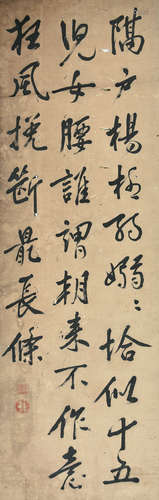 隔戶楊柳弱嫋〻恰似十五
兒女腰誰謂朝來不作意
狂風挽斷最長條